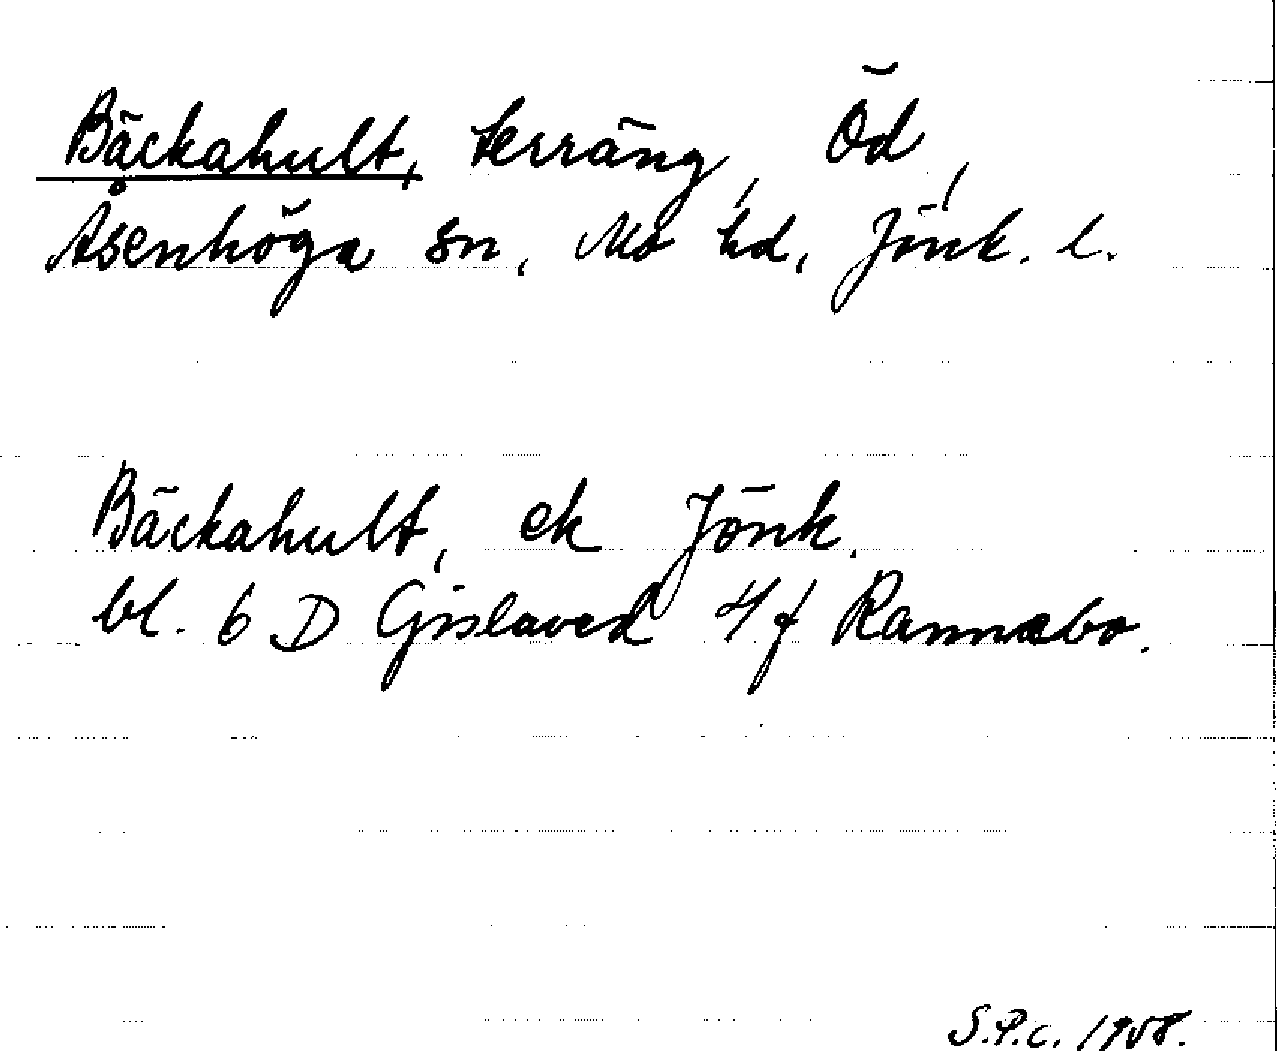 Bäckahult, terräng, Öd,
Åsenhöga sn, Mo hd, Jönk. l.
Bäckahult, ek Jönk.
bl. 6 D Gislaved 4f Rannabo.
S.P.C. 1958.